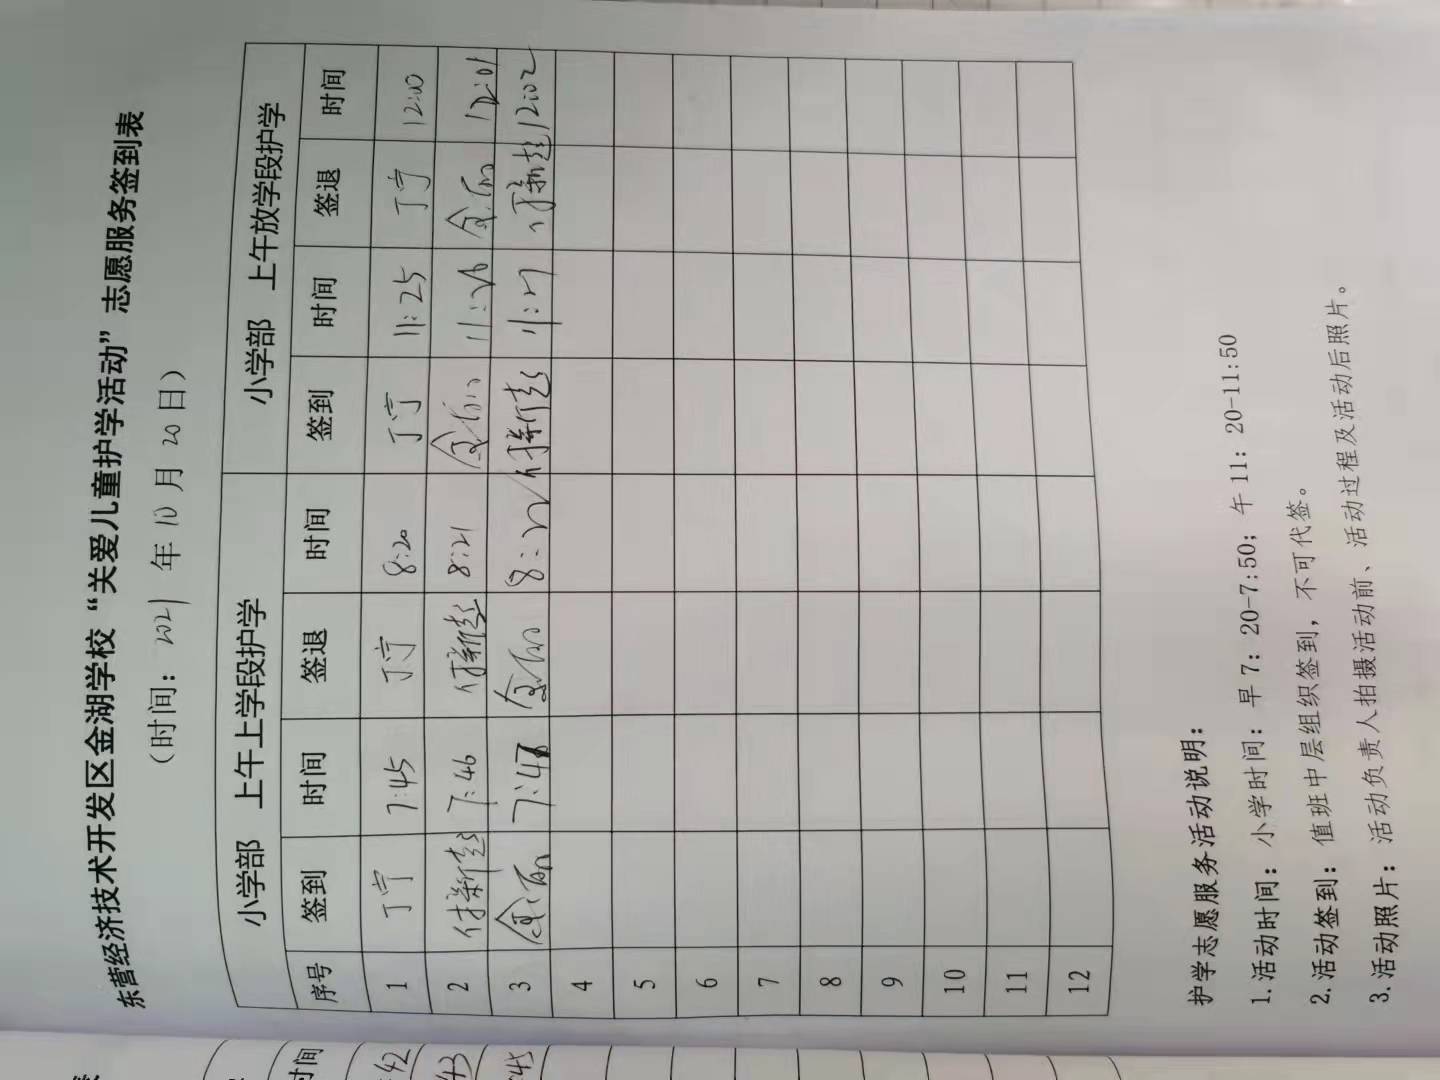 东营经济技术开发区金湖学校“关爱儿童护学活动”志愿服务签到表
（时间：2021年10月20日）
小学部 上午上学段护学 小学部 上午放学段护学
序号 签到 时间 签退 时间 签到 时间 签退 时间
1 丁宁 7:45 丁宁 8:20 丁宁 11:25 丁宁 12:00
2 7:46 8:21 11:26 12:01
3 8:22 11:27 12:02
4
5
6
7
8
9
10
11
12
护学志愿服务活动说明：
1.活动时间：小学时间：早7：20-7:50；午11：20-11:50
2.活动签到：值班中层组织签到，不可代签。
3.活动照片：活动负责人拍摄活动前、活动过程及活动后照片。
时间
:42
:43
:45